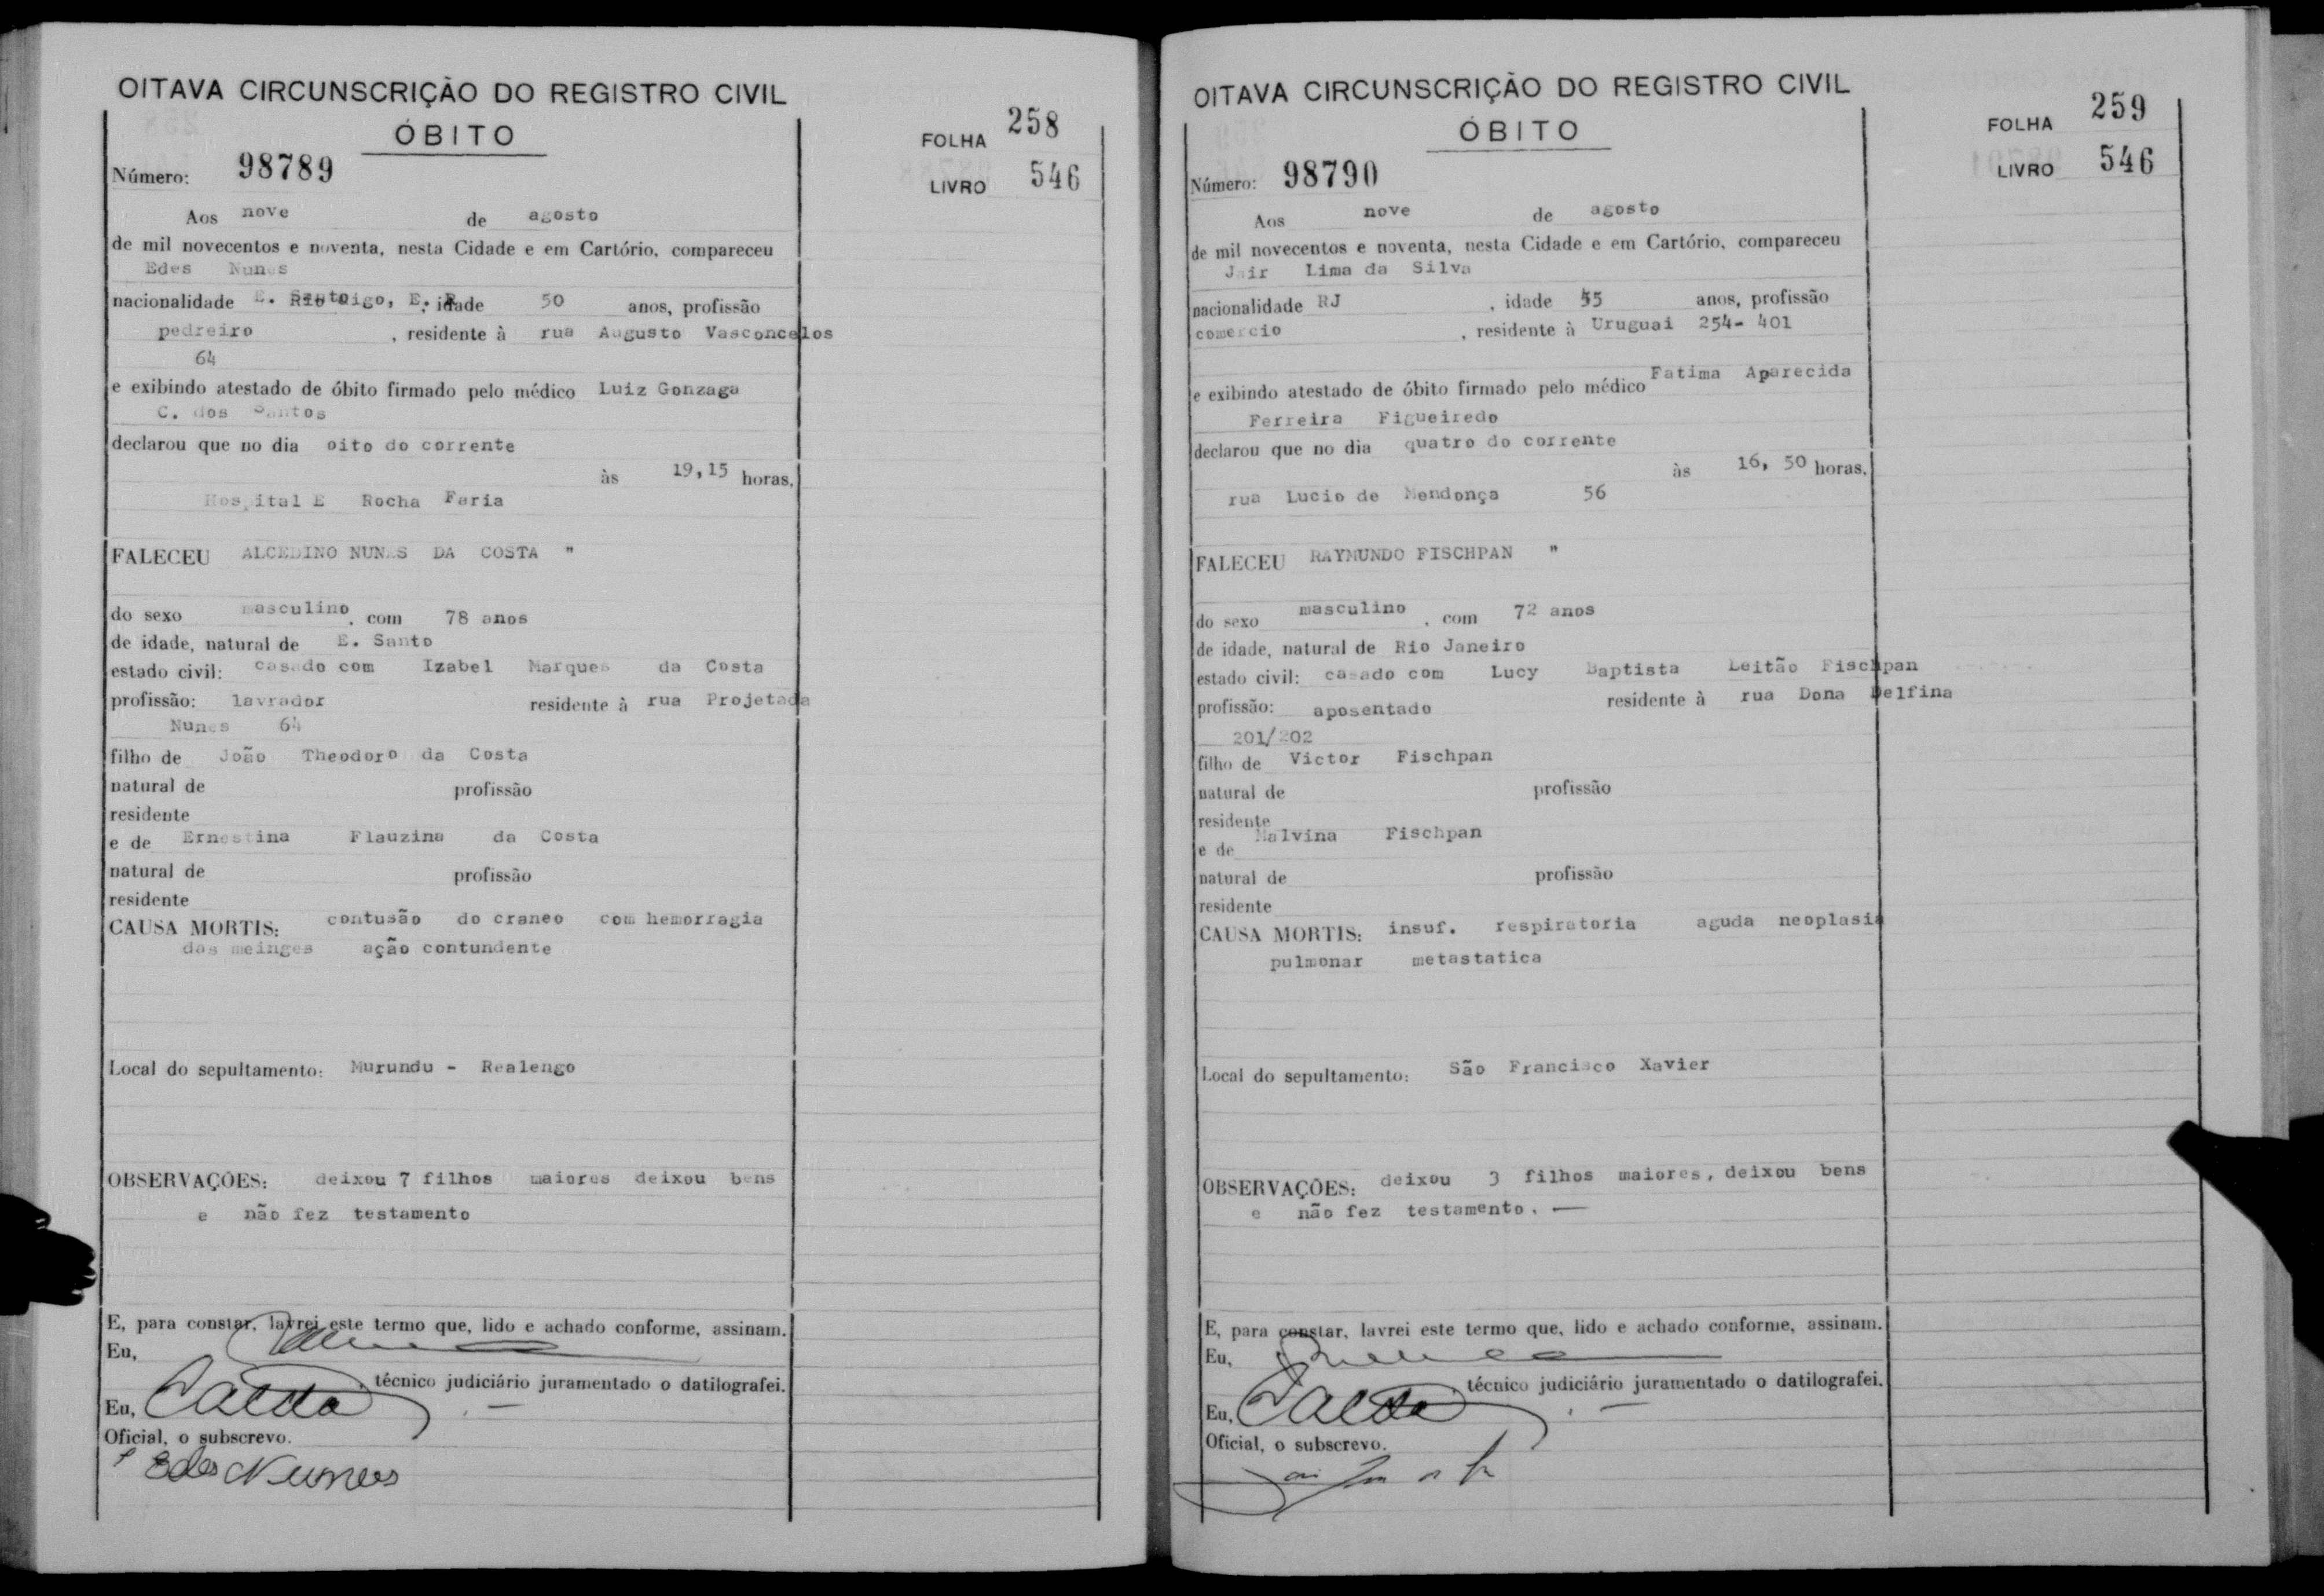 OITAVA CIRCUNSCRIÇÃO DO REGISTRO CIVIL
ÓBITO
FOLHA 258
Número: 98789
LIVRO 546
Aos nove de agosto
de mil novecentos e noventa, nesta Cidade e em Cartório, compareceu
Edes Nunes
nacionalidade E. Santo, idade 50 anos, profissão
pedreiro, residente à rua Augusto Vasconcelos
64
e exibindo atestado de óbito firmado pelo médico Luiz Gonzaga
C. dos Santos
declarou que no dia oito do corrente
às 19,15 horas,
Hospital E Rocha Faria
FALECEU ALCEDINO NUNES DA COSTA "
do sexo masculino, com 78 anos
de idade, natural de E. Santo
estado civil: casado com Izabel Marques da Costa
profissão: lavrador residente à rua Projetada
Nunes 64
filho de João Theodoro da Costa
natural de profissão
residente
e de Ernestina Flauzina da Costa
natural de profissão
residente
CAUSA MORTIS: contusão do craneo com hemorragia
das meinges ação contundente
Local do sepultamento: Murundu - Realengo
OBSERVAÇÕES: deixou 7 filhos maiores deixou bens
e não fez testamento
E, para constar, lavrei este termo que, lido e achado conforme, assinam.
Eu,
, técnico judiciário juramentado o datilografei.
Eu, . —
Oficial, o subscrevo.
Edes Nunes
OITAVA CIRCUNSCRIÇÃO DO REGISTRO CIVIL
ÓBITO
FOLHA 259
Número: 98790
LIVRO 546
Aos nove de agosto
de mil novecentos e noventa, nesta Cidade e em Cartório, compareceu
Jair Lima da Silva
nacionalidade RJ, idade 55 anos, profissão
comercio, residente à Uruguai 254- 401
e exibindo atestado de óbito firmado pelo médico Fatima Aparecida
Ferreira Figueiredo
declarou que no dia quatro do corrente
às 16, 50 horas,
rua Lucio de Mendonça 56
FALECEU RAYMUNDO FISCHPAN "
do sexo masculino, com 72 anos
de idade, natural de Rio Janeiro
estado civil: casado com Lucy Baptista Leitão Fischpan
profissão: aposentado residente à rua Dona Delfina
201/202
filho de Victor Fischpan
natural de profissão
residente
e de Malvina Fischpan
natural de profissão
residente
CAUSA MORTIS: insuf. respiratoria aguda neoplasia
pulmonar metastatica
Local do sepultamento: São Francisco Xavier
OBSERVAÇÕES: deixou 3 filhos maiores, deixou bens
e não fez testamento. —
E, para constar, lavrei este termo que, lido e achado conforme, assinam.
Eu,
, técnico judiciário juramentado o datilografei.
Eu, . —
Oficial, o subscrevo.